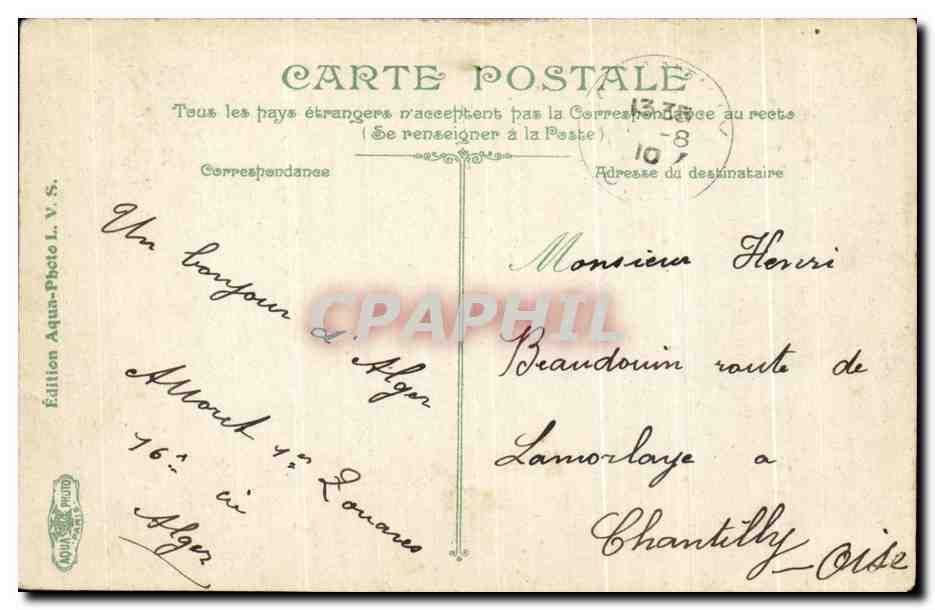 CARTE POSTALE
Tous les pays étrangers n'acceptent pas la Correspondance au recto
(Se renseigner à la Poste)
Correspondance
Adresse du destinataire
13 35
-8
10
Un bonjour
d'Alger
1er Zouaves
16e cie
Alger
Monsieur Henri
Beaudouin route de
Lamorlaye a
Chantilly
Oise
Édition Aqua-Photo L. V. S.
AQUA PHOTO
PARIS
CPAPHIL